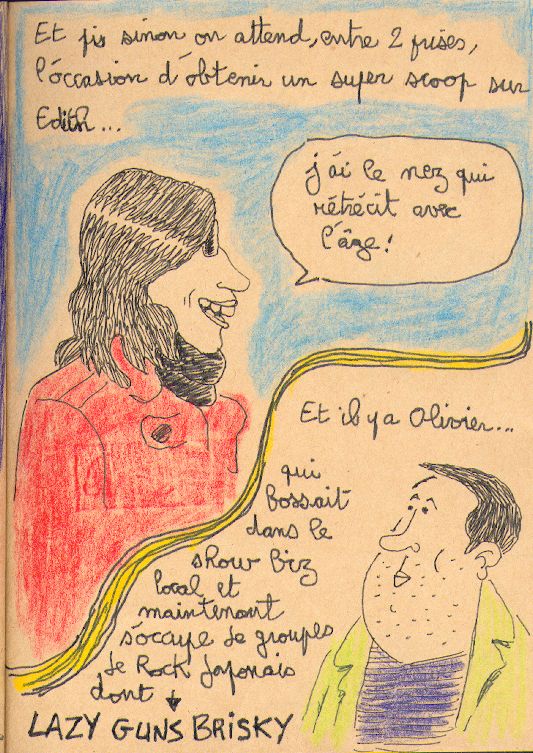 Et pis sinon on attend, entre 2 prises,
l'occasion d'obtenir un super scoop sur
Edith...
j'ai le nez qui
rétrécit avec
l'âge!
Et il y a Olivier...
qui
bossait
dans le
show biz
local et
maintenant
s'occupe de groupes
de Rock Japonais
dont
LAZY GUNS BRISKY